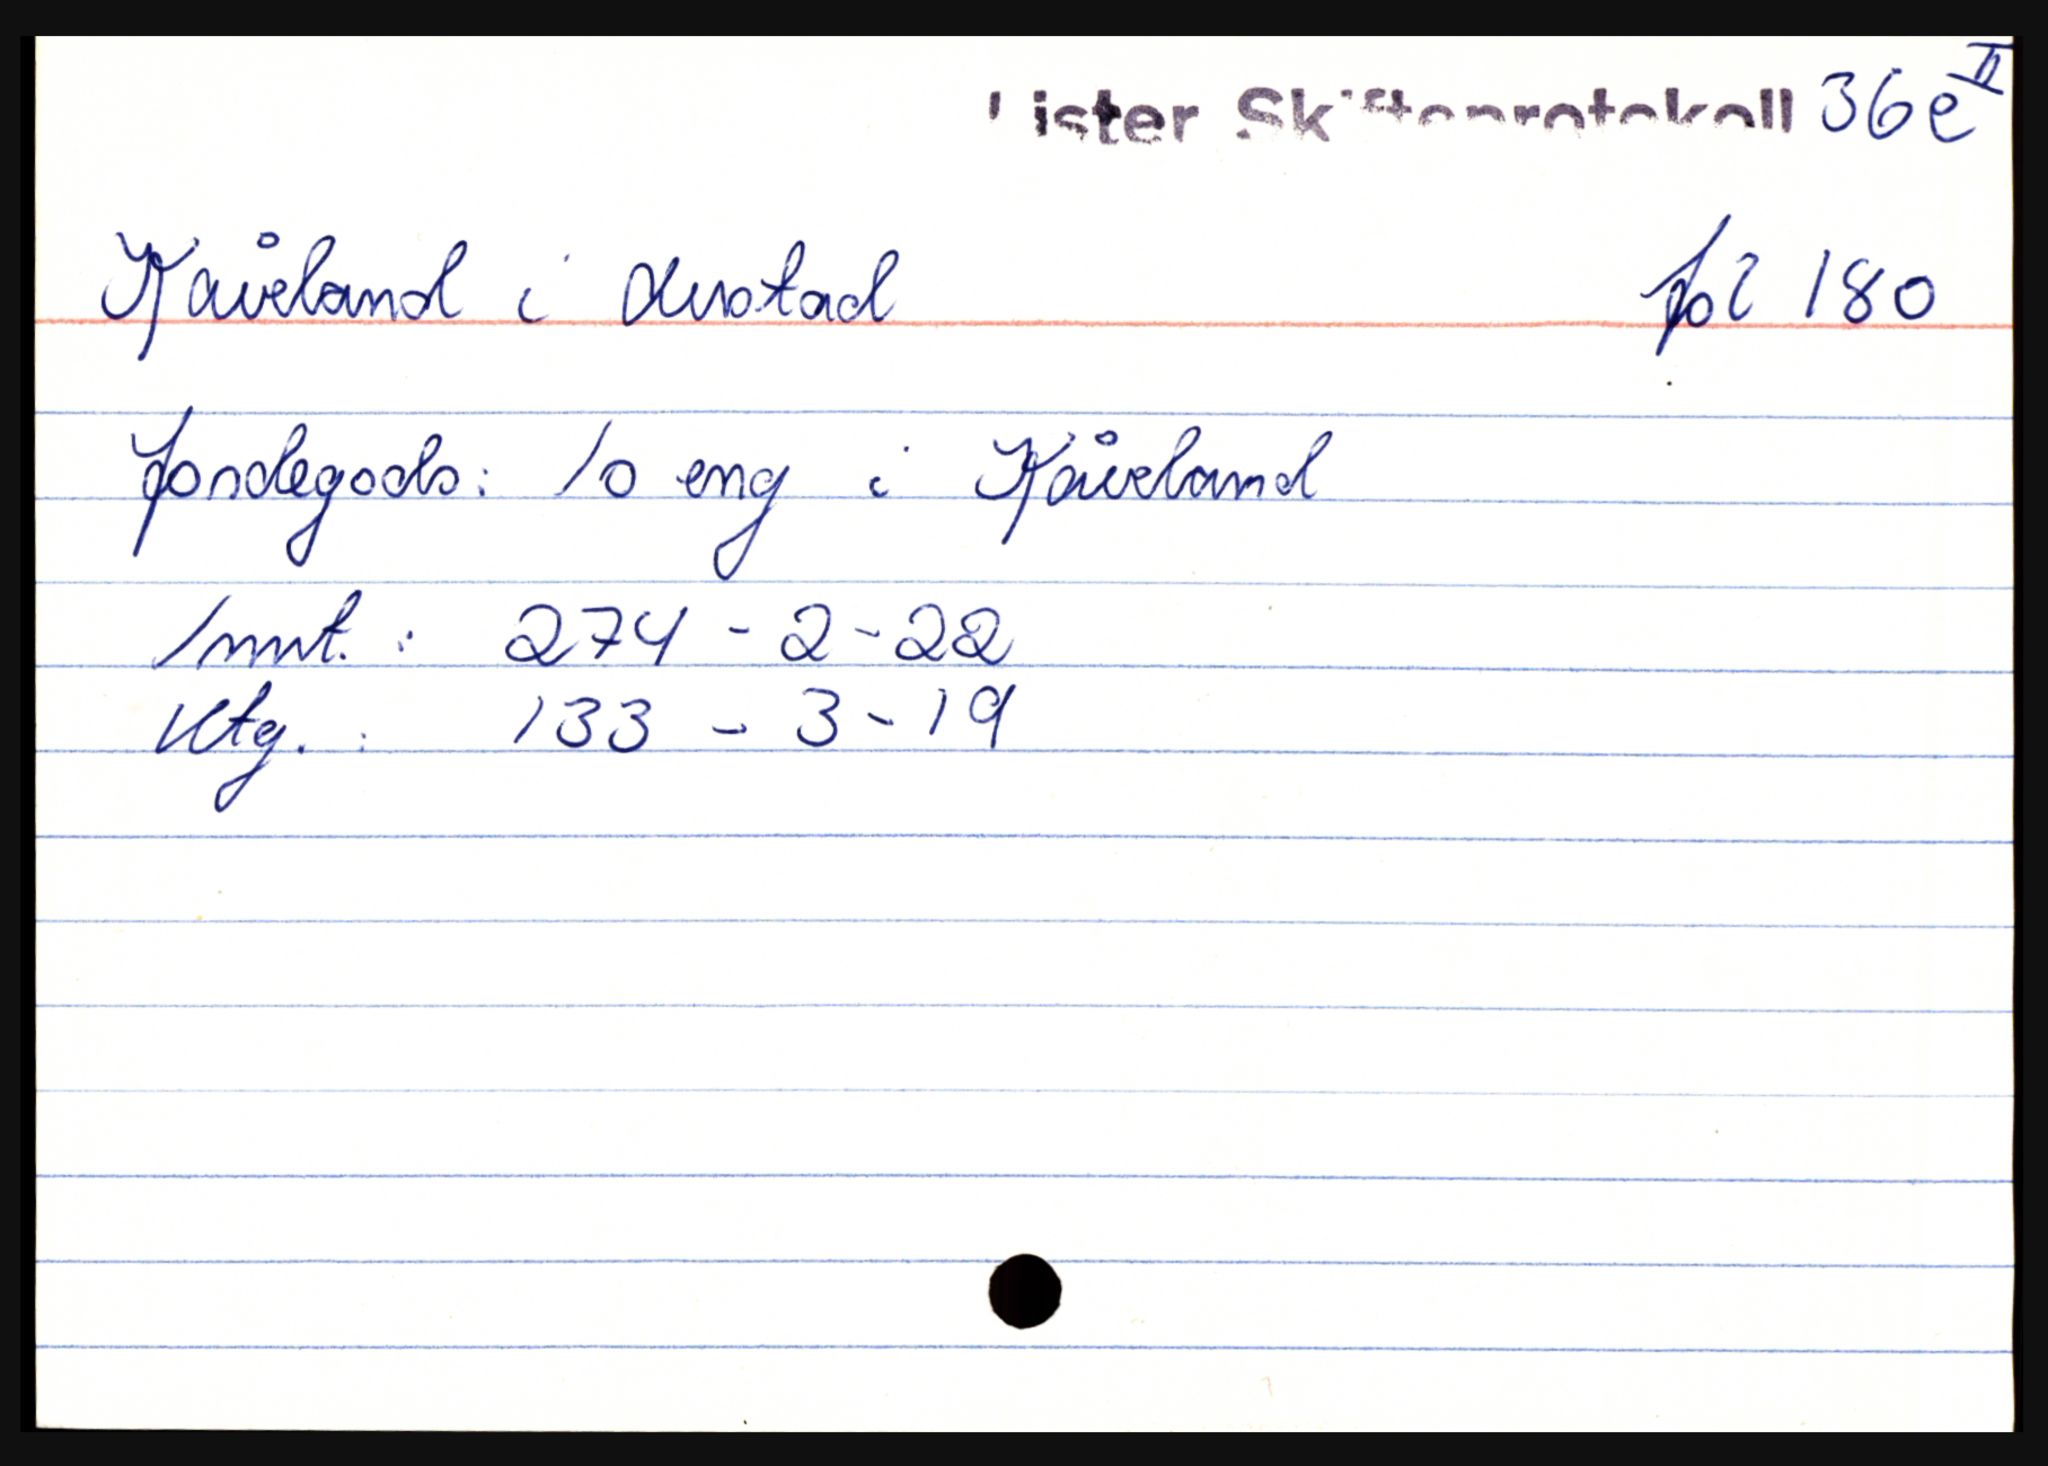 Lister Skifteprotokoll 36e II
Kåveland i Austad fol 180
Jordegods: 10 eng i Kåveland
Innt. : 274 - 2 - 22
Utg. : 133 - 3 - 19